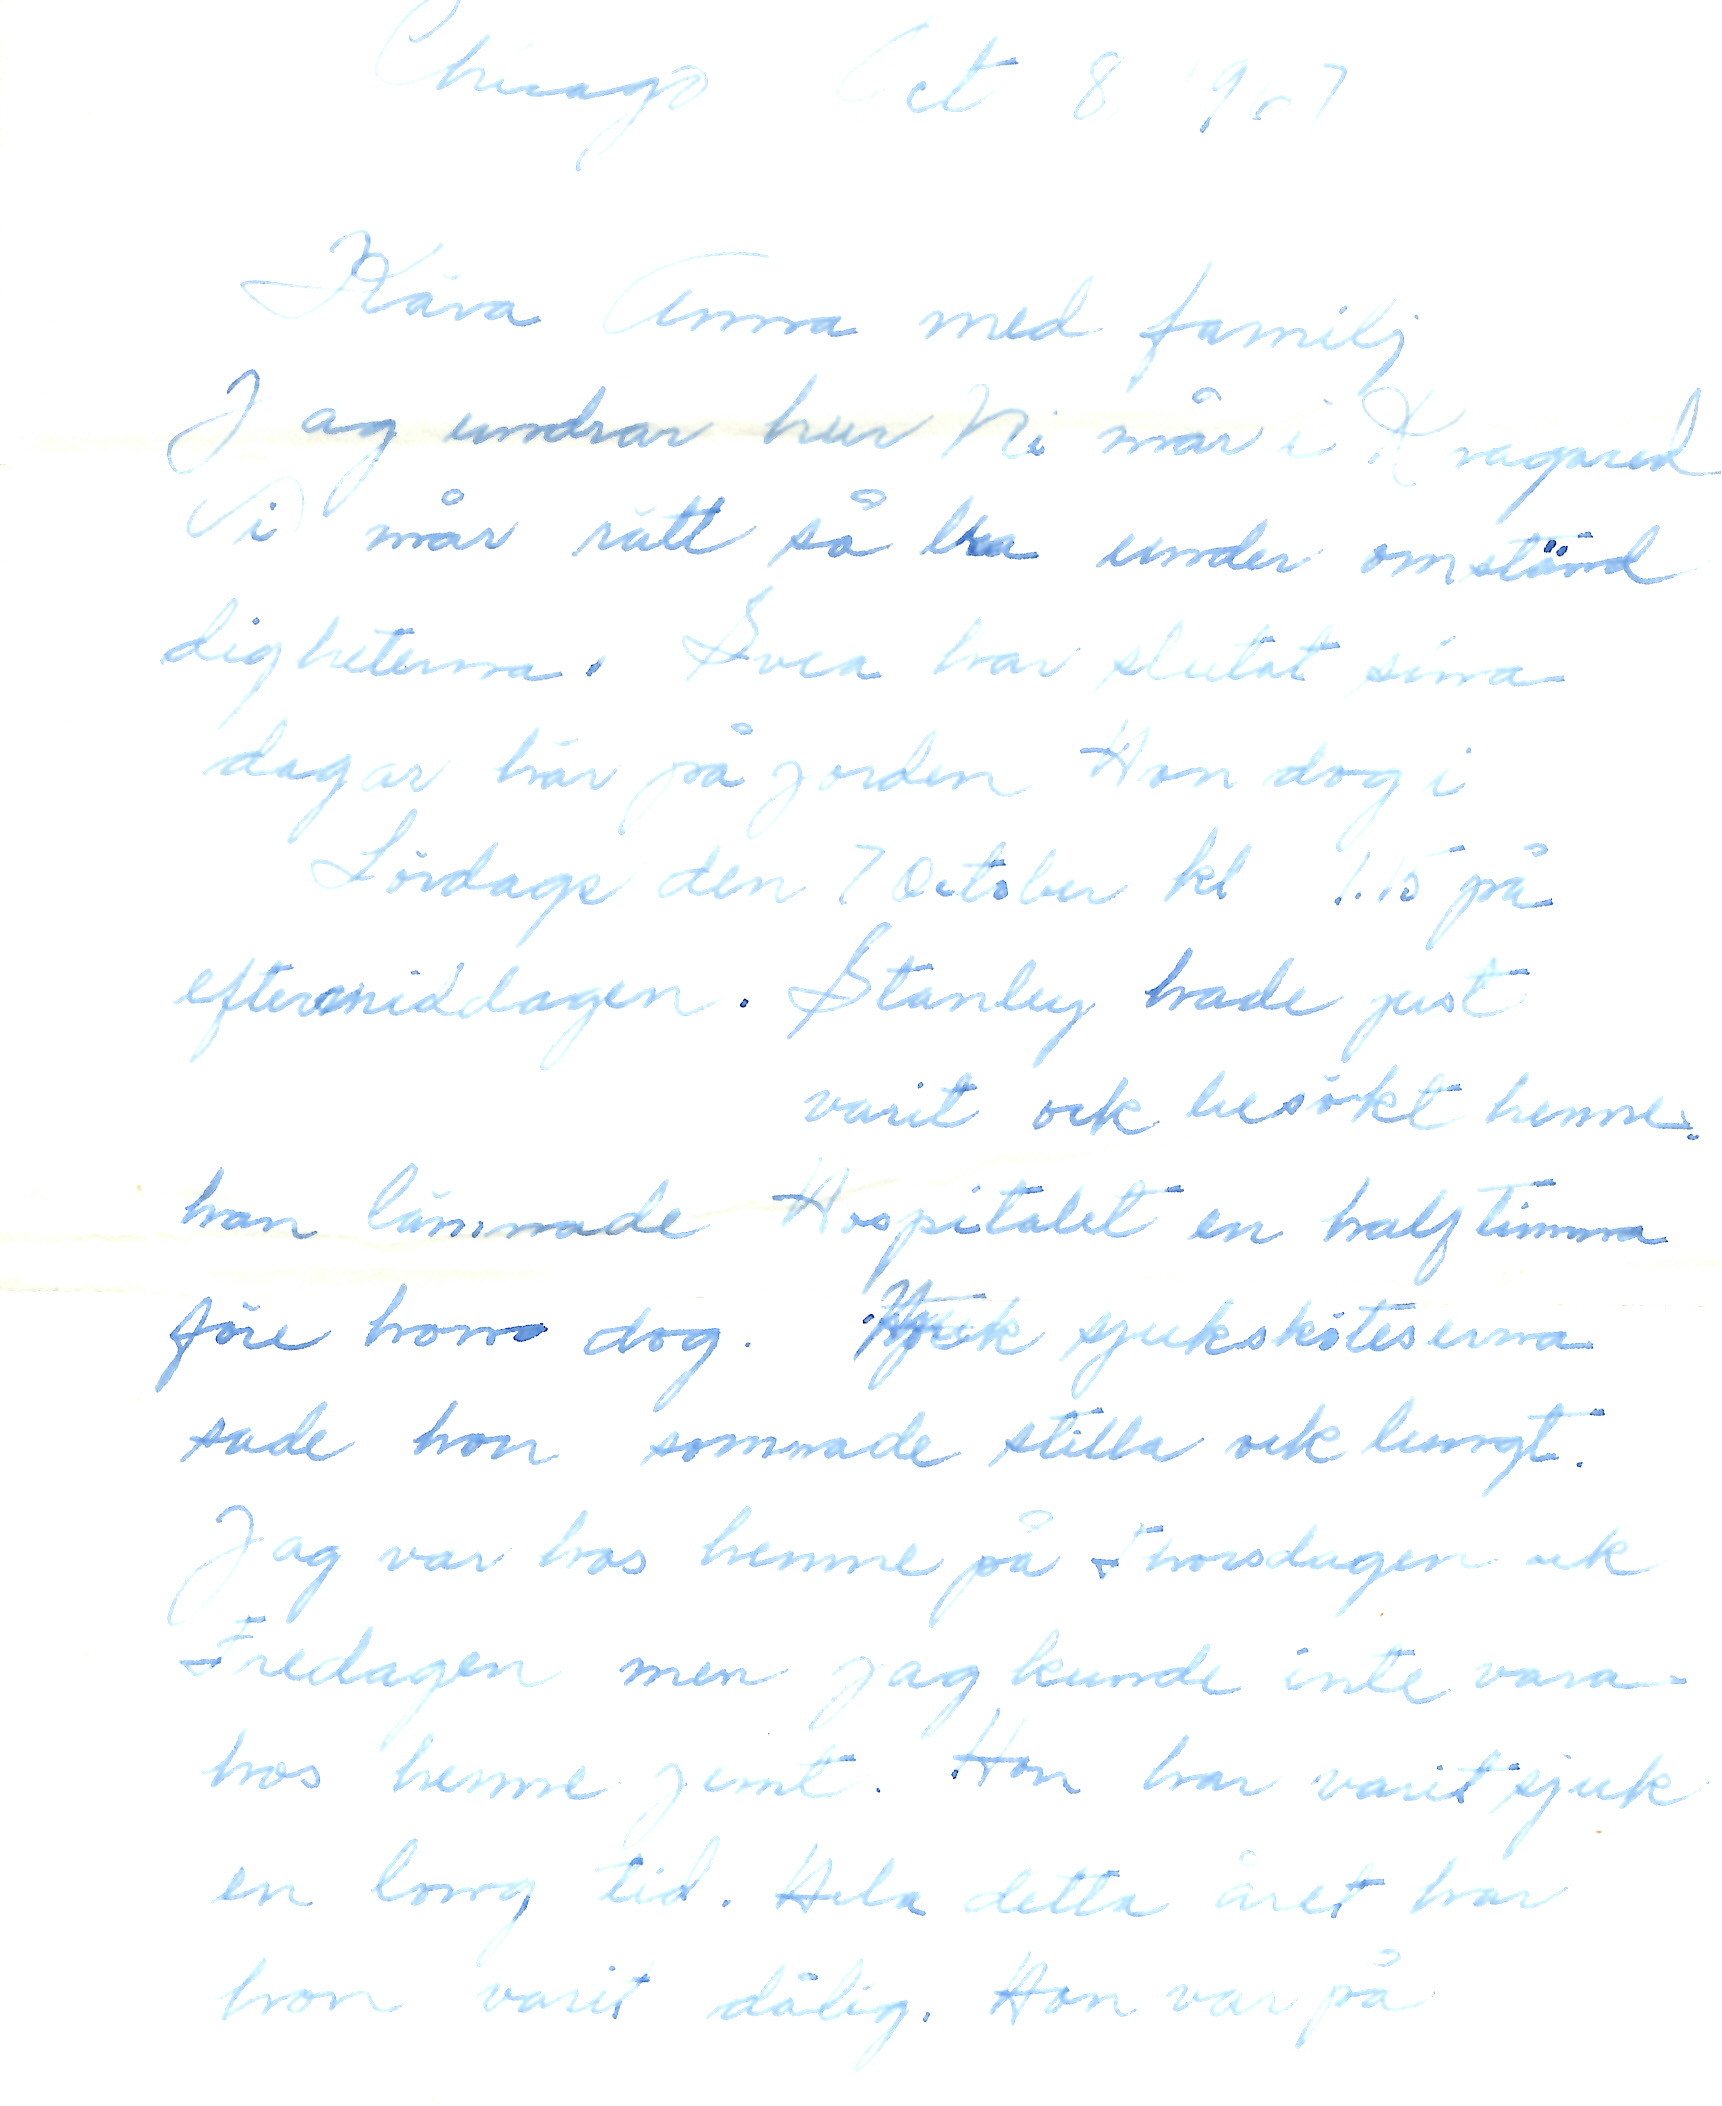 Chicago Oct 8 1967
Kära Anna med familj
Jag undrar hur Ni mår i Kvagared
Vi mår rätt så bra under omständ
digheterna. Svea har slutat sina
dagar här på jorden Hon dog i
Lördags den 7 October kl 1.15 på
eftermiddagen. Stanley hade just
varit ock besökt henne.
han lämnade Hospitalet en half timma
före hon dog. sjuksköteserna
sade hon somnade stilla ock lungt.
Jag var hos henne på Thorsdagen ock
Fredagen men jag kunde inte vara
hos henne jemt. Hon har varit sjuk
en long tid. Hela detta året har
hon varit dålig. Hon var på